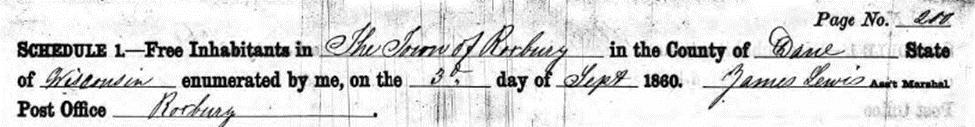 Page No. 200
SCHEDULE 1.—Free Inhabitants in The Town of Roxbury in the County of Dane State
of Wisconsin enumerated by me, on the 3d day of Sept 1860. James Lewis Ass't Marshal
Post Office Roxbury.